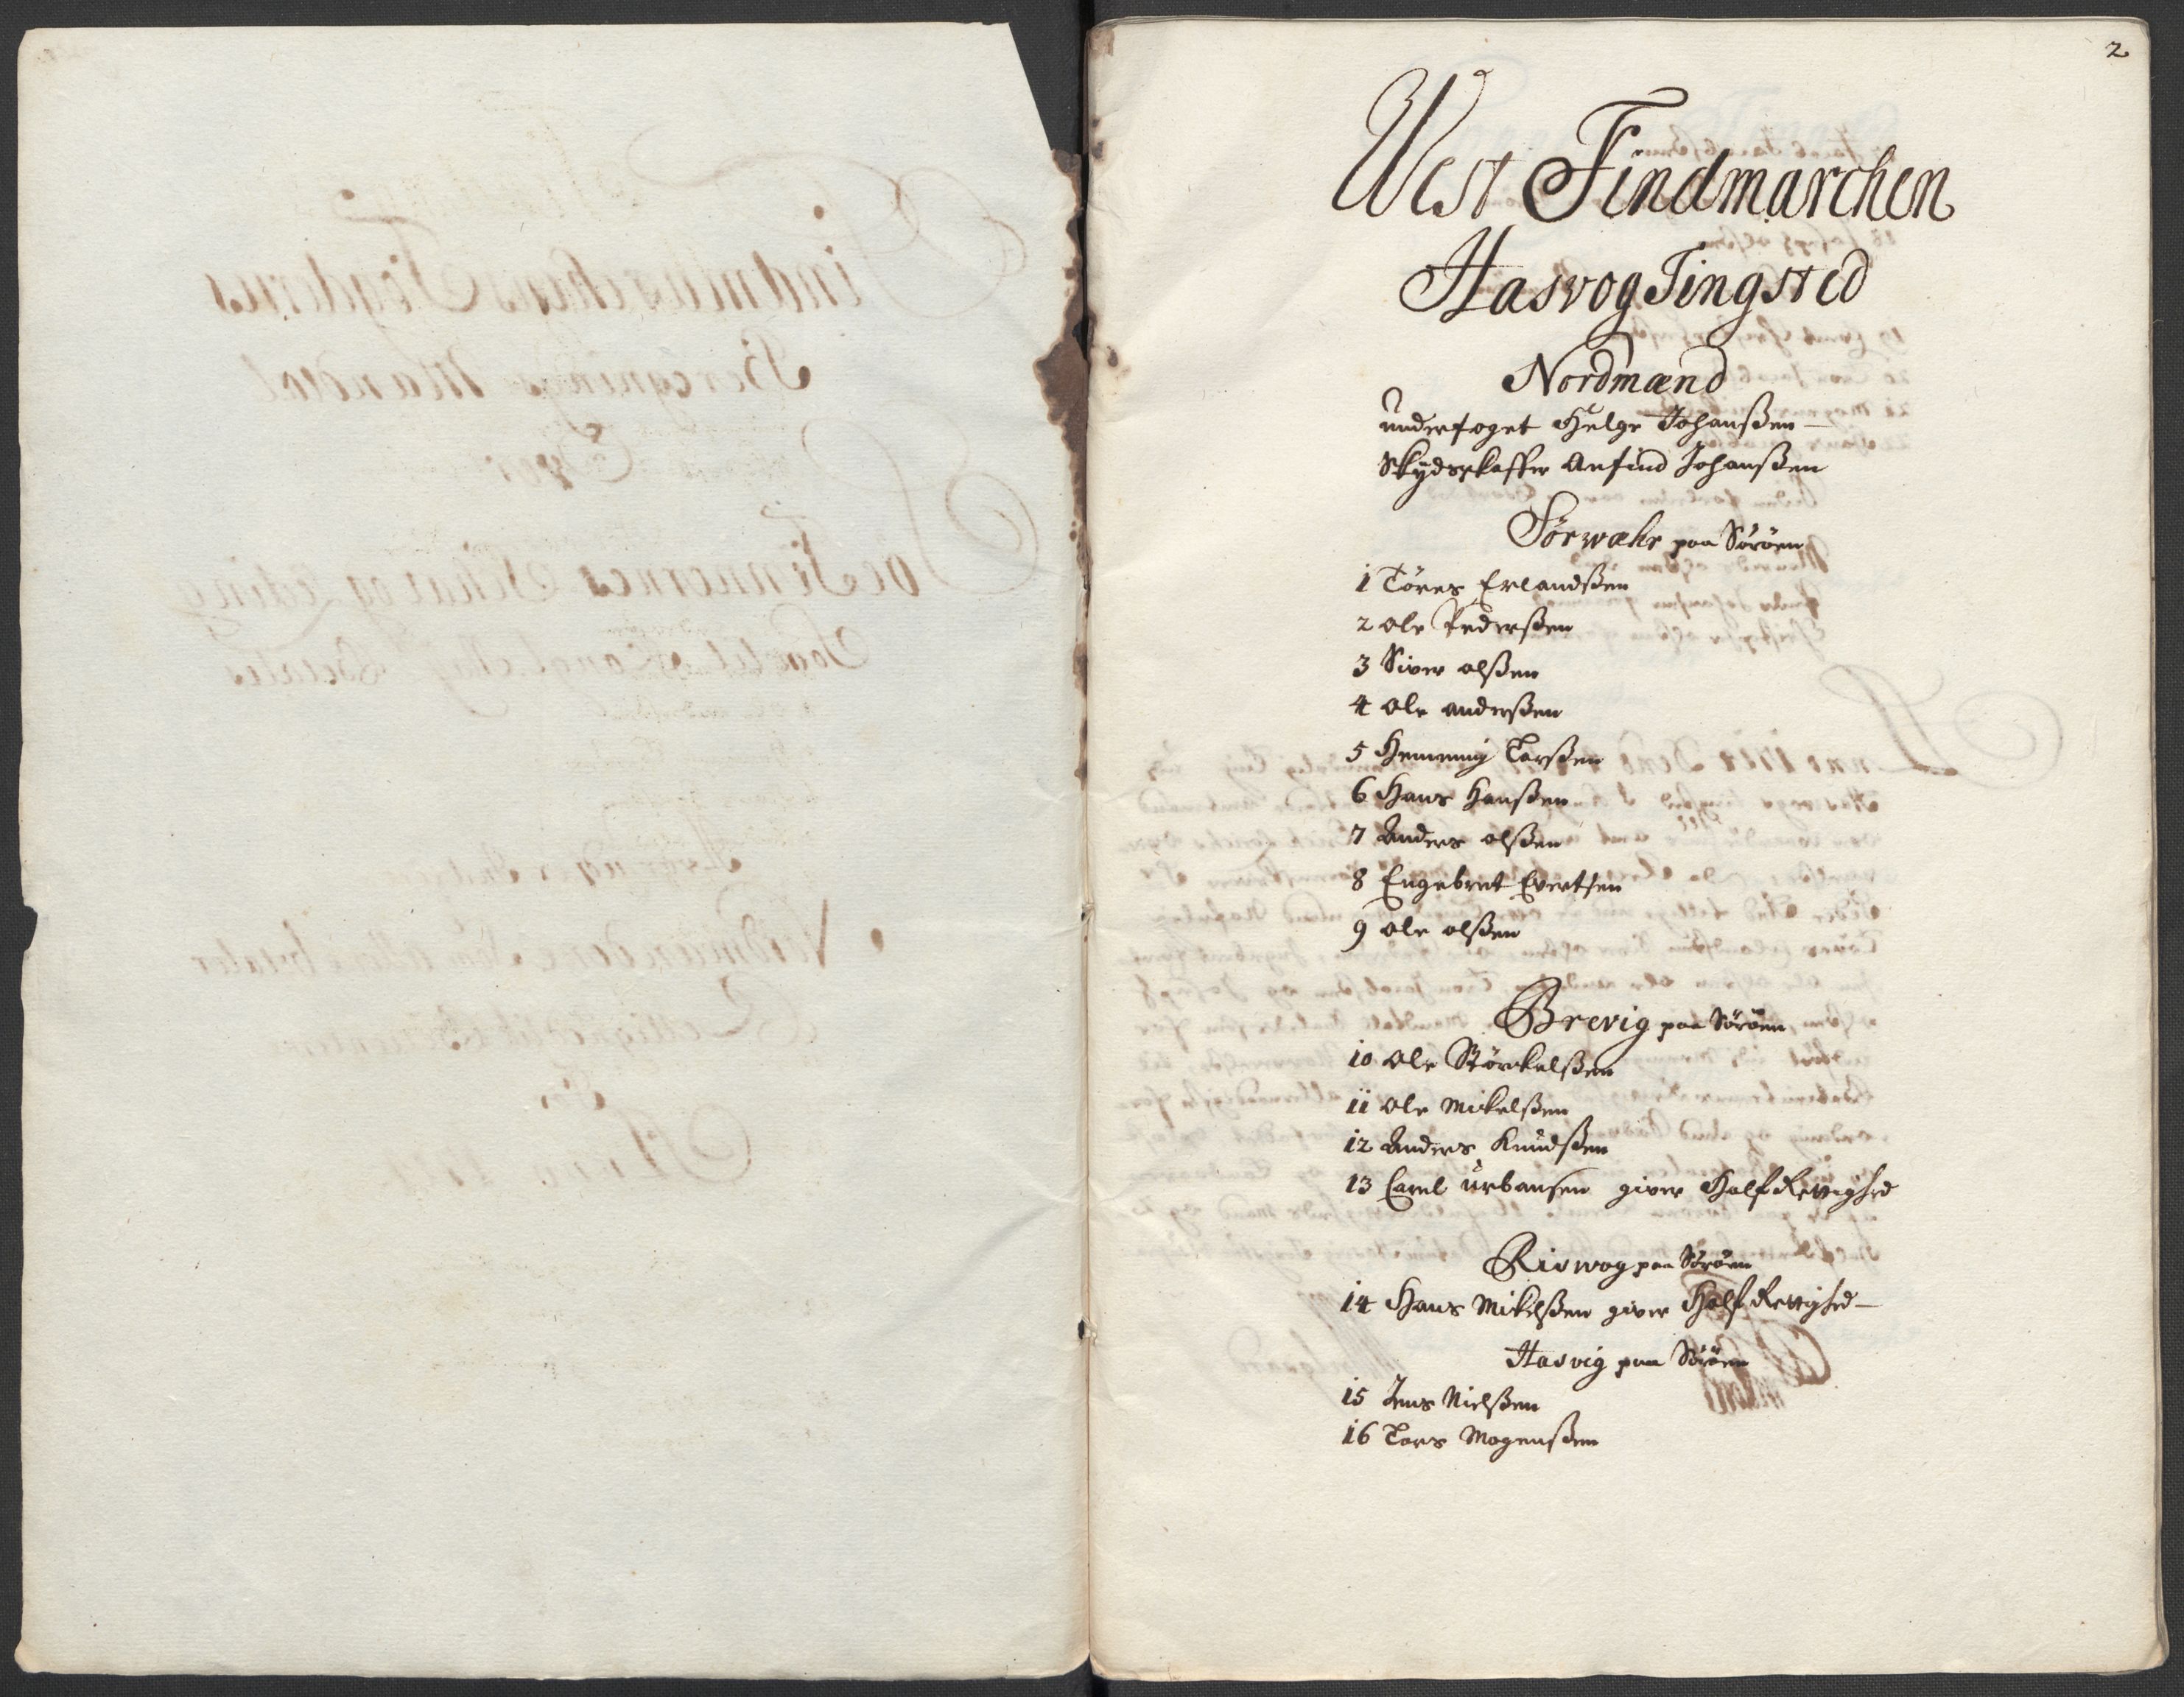 2
West Findmarchen
Hasvog Tingsted
Nordmænd
underfoget Helge Johanßen
Skydsskaffer Anfind Johanßen
Sørwæhr paa Sørøen
1 Tøres Erlandßen
2 Ole Pederßen
3 Siver olßen
4 Ole anderßen
5 Henning Larßen
6 Hans Hanßen
7 Anders olßen
8 Engebret Evertsen
9 Ole olßen
Brevig paa Sørøen
10 Ole Størkelßen
11 Ole Mickelßen
12 Anders Knudßen
13 Carel urbansen giver Half Rettighed
Riswog paa Sørøen
14 Hans Mikelßen giver Half Rettighed
Hasvig paa Sørøen
15 Jens Nielßen
16 Lars Mogenßen